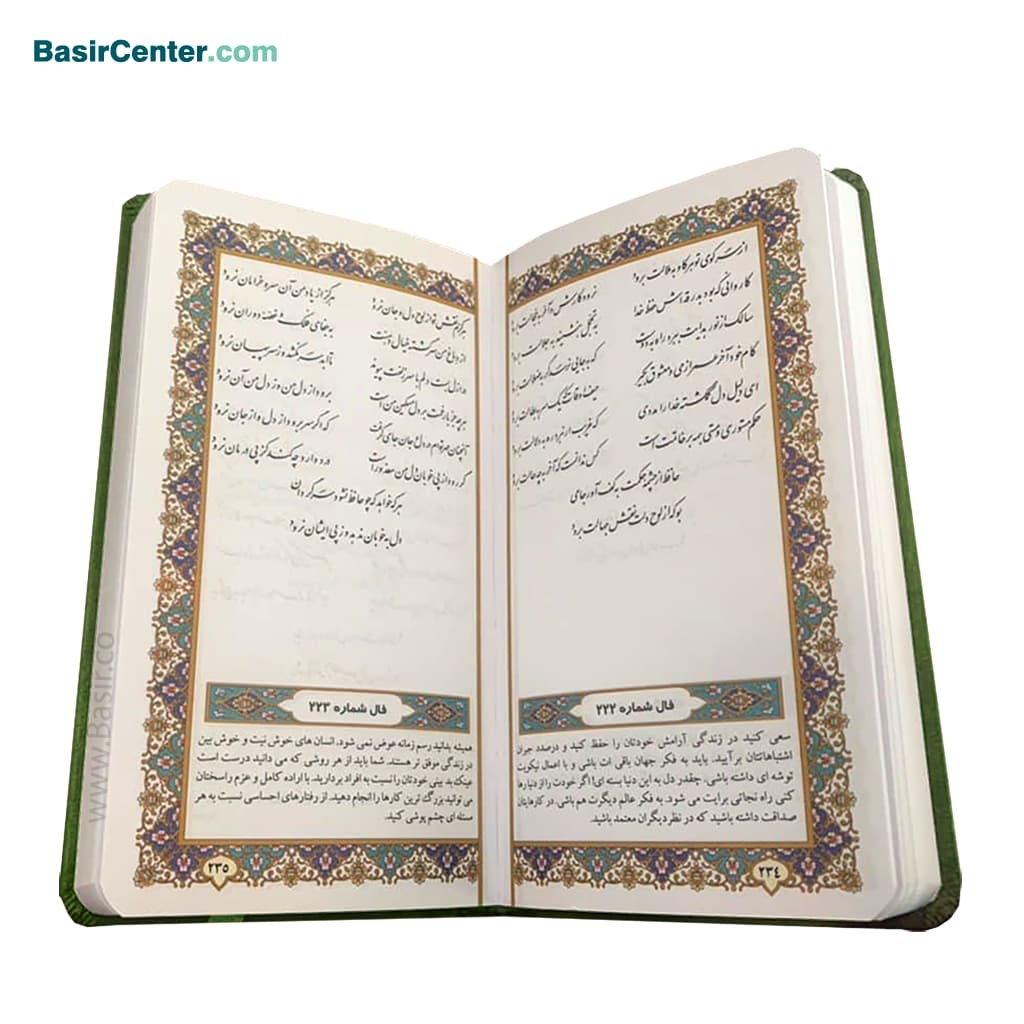 BasirCenter.com
از سر کوی تو هر کاو به ملالت برود نرود کارش و آخر به خجالت برود
کاروانی که بود بدرقه اش حفظ خدا به تجمل بنشیند به جلالت برود
سالک از نور هدایت ببرد راه به دوست که به جایی نرسد گر به ضلالت برود
کام خود آخر عمر از می و معشوق بگیر حیف اوقات که یک سر به بطالت برود
ای دلیل دل گمگشته خدا را مددی که غریب ار نبرد ره به دلالت برود
حکم مستوری و مستی همه بر خاتمت است کس ندانست که آخر به چه حالت برود
حافظ از چشمه حکمت به کف آور جامی
بو که از لوح دلت نقش جهالت برود
فال شماره ۲۲۲
سعی کنید در زندگی آرامش خودتان را حفظ کنید و درصدد جبران
اشتباهاتتان برآیید. باید به فکر جهان باقی ات باشی و با اعمال نیکویت
توشه ای داشته باشی. چقدر دل به این دنیا بسته ای! اگر خودت را از دنیا رها
کنی راه نجاتی برایت می شود. به فکر عالم دیگرت هم باشی. در کارهایتان
صداقت داشته باشید که در نظر دیگران معتمد باشید.
۲۳۴
هرگزم نقش تو از لوح دل و جان نرود هرگز از یاد من آن سرو خرامان نرود
از دماغ من سرگشته خیال دهنت به جفای فلک و غصه دوران نرود
در ازل بست دلم با سر زلفت پیوند تا ابد سر نکشد وز سر پیمان نرود
هر چه جز بار غمت بر دل مسکین من است برود از دل من وز دل من آن نرود
آنچنان مهر توام در دل و جان جای گرفت که اگر سر برود از دل و از جان نرود
گر رود از پی خوبان دل من معذور است درد دارد چه کند کز پی درمان نرود
هر که خواهد که چو حافظ نشود سرگردان
دل به خوبان ندهد وز پی ایشان نرود
فال شماره ۲۲۳
همیشه بدانید رسم زمانه عوض نمی شود. انسان های خوش نیت و خوش بین
در زندگی موفق تر هستند. شما باید از هر روشی که می دانید درست است
عینک بد بینی خودتان را نسبت به افراد بردارید. با اراده کامل و عزم راسختان
می توانید بزرگ ترین کارها را انجام دهید. از رفتارهای احساسی نسبت به هر
مسئله ای چشم پوشی کنید.
۲۳۵
www.Basir.co